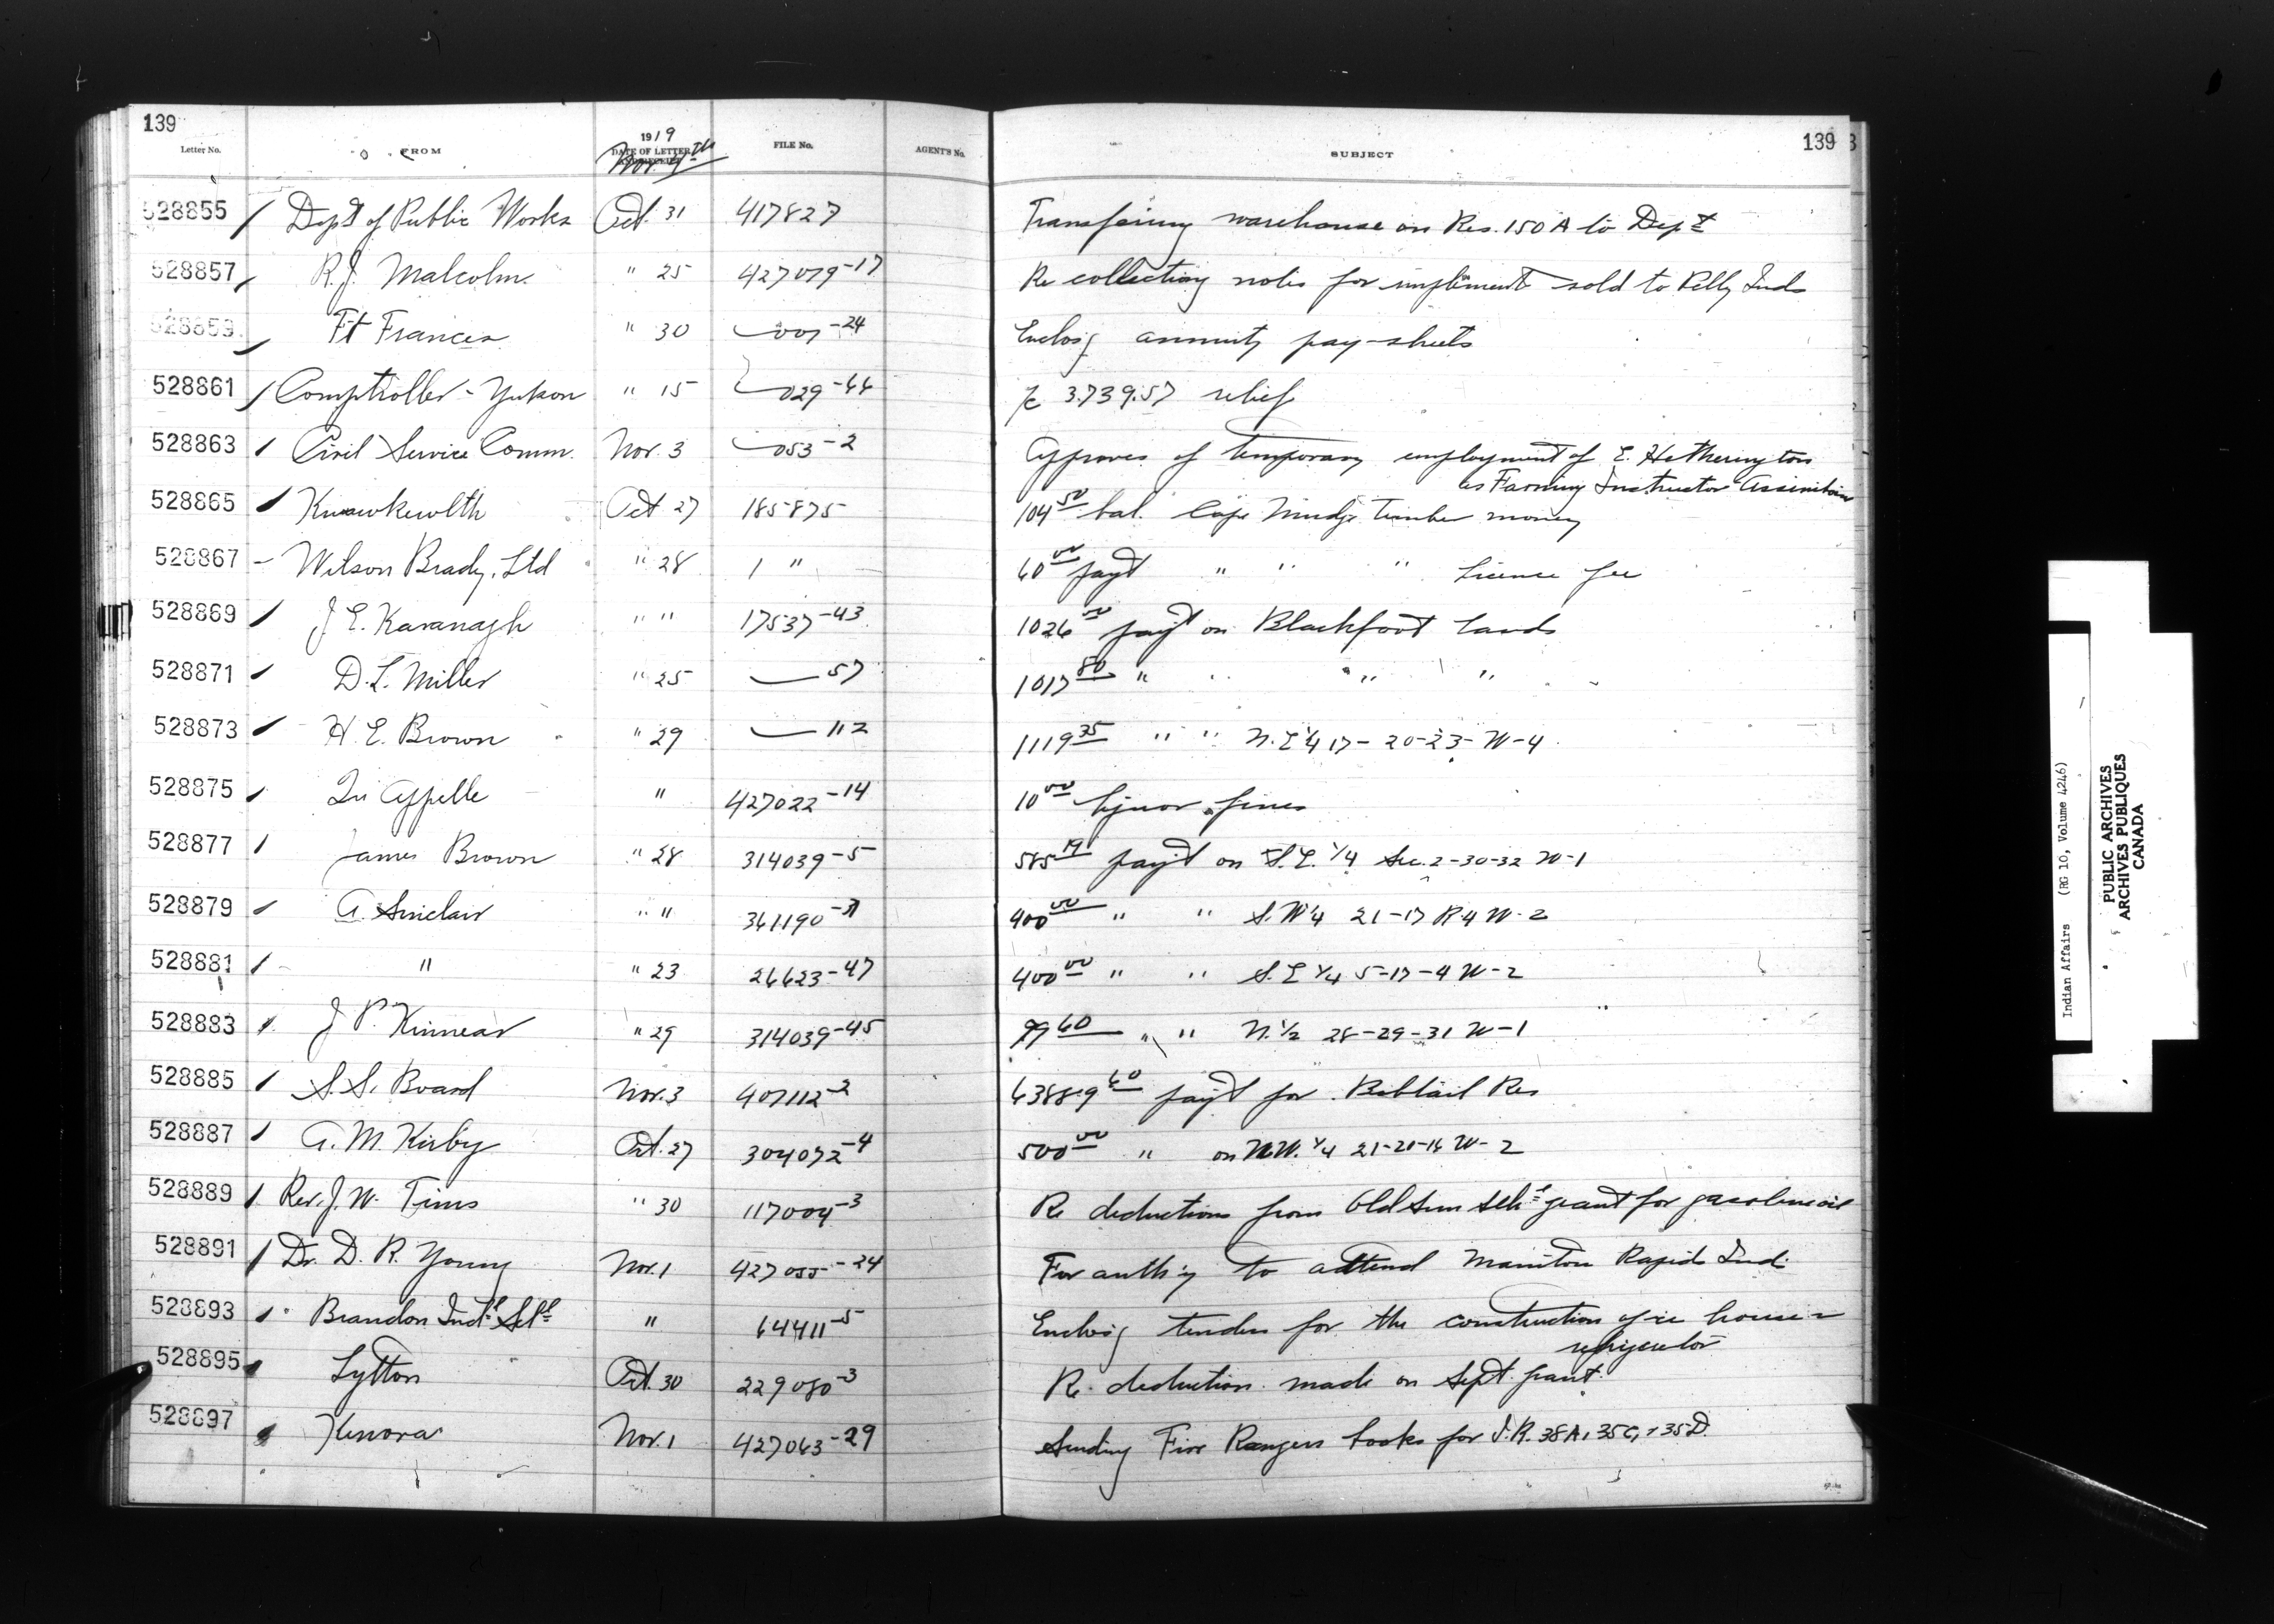 139
139
Letter No. FROM 1919 DATE OF LETTER AND RECEIPT FILE No. AGENT'S No. SUBJECT
Nov. 4th
528855 Dept of Public Works Oct. 31 417827 Transfering warehouse on Res. 150A to Dept
528857 R.J. Malcolm " 25 427079-17 Re collecting notes for implement sold to Pelly Inds
528859 Ft Frances " 30 007-24 Enclosg annuity pay-sheets
528861 Comptroller - Yukon " 15 029-44 3.739.57 relief
528863 Civil Service Comm. Nov. 3 053-2 Approves of temporary employment of E. Hetherington
as Farming Instructor Assiniboine
528865 Kwawkewlth Oct 27 185875 104 50 bal. Cape Mudge Timber money
528867 Wilson Brady, Ltd " 28 1 " 60 00 payt " " " License fee
528869 J E. Kavanagh " " 17537-43 1026 00 payt on Blackfoot Lands
528871 D.L. Miller " 25 57 1017 80 " " " "
528873 H. E. Brown " 29 112 1119 35 " " N.E 1/4 17-20-23-W-4
528875 Qu'Appelle " 427022-14 10 00 liquor fines
528877 James Brown " 28 314039-5 585 19 payt on S.E. 1/4 Sec. 2-30-32 W-1
528879 A. Sinclair " " 361190-31 400 00 " " S.W 1/4 21-17 R4 W-2
528881 " " 23 26623-47 400 00 " " S.E 1/4 5-17-4 W-2
528883 J P. Kinnear " 29 314039-45 99 60 " " N. 1/2 28-29-31 W-1
528885 S. S. Board Nov. 3 407112-2 63889 60 payt for Bobtail Res
528887 A. M. Kirby Oct. 27 304072-4 500 00 " on N.W. 1/4 21-20-16 W-2
528889 Rev. J. W. Tims " 30 117004-3 Re deductions from Old Sun Schl grant for gasoline oil
528891 Dr. D. R. Young Nov. 1 427055-24 For authy to attend Manitou Rapids Ind.
528893 Brandon Indl Schl " 64411-5 Enclosg tenders for the construction of ice house &
refrigerator
528895 Lytton Oct. 30 229080-3 Re. deduction made on Sept. grant.
528897 Kenora Nov. 1 427063-29 Sending Fire Rangers books for I.R. 38A, 35C, & 35D.
Indian Affairs (RG 10, Volume 4246)
PUBLIC ARCHIVES
ARCHIVES PUBLIQUES
CANADA